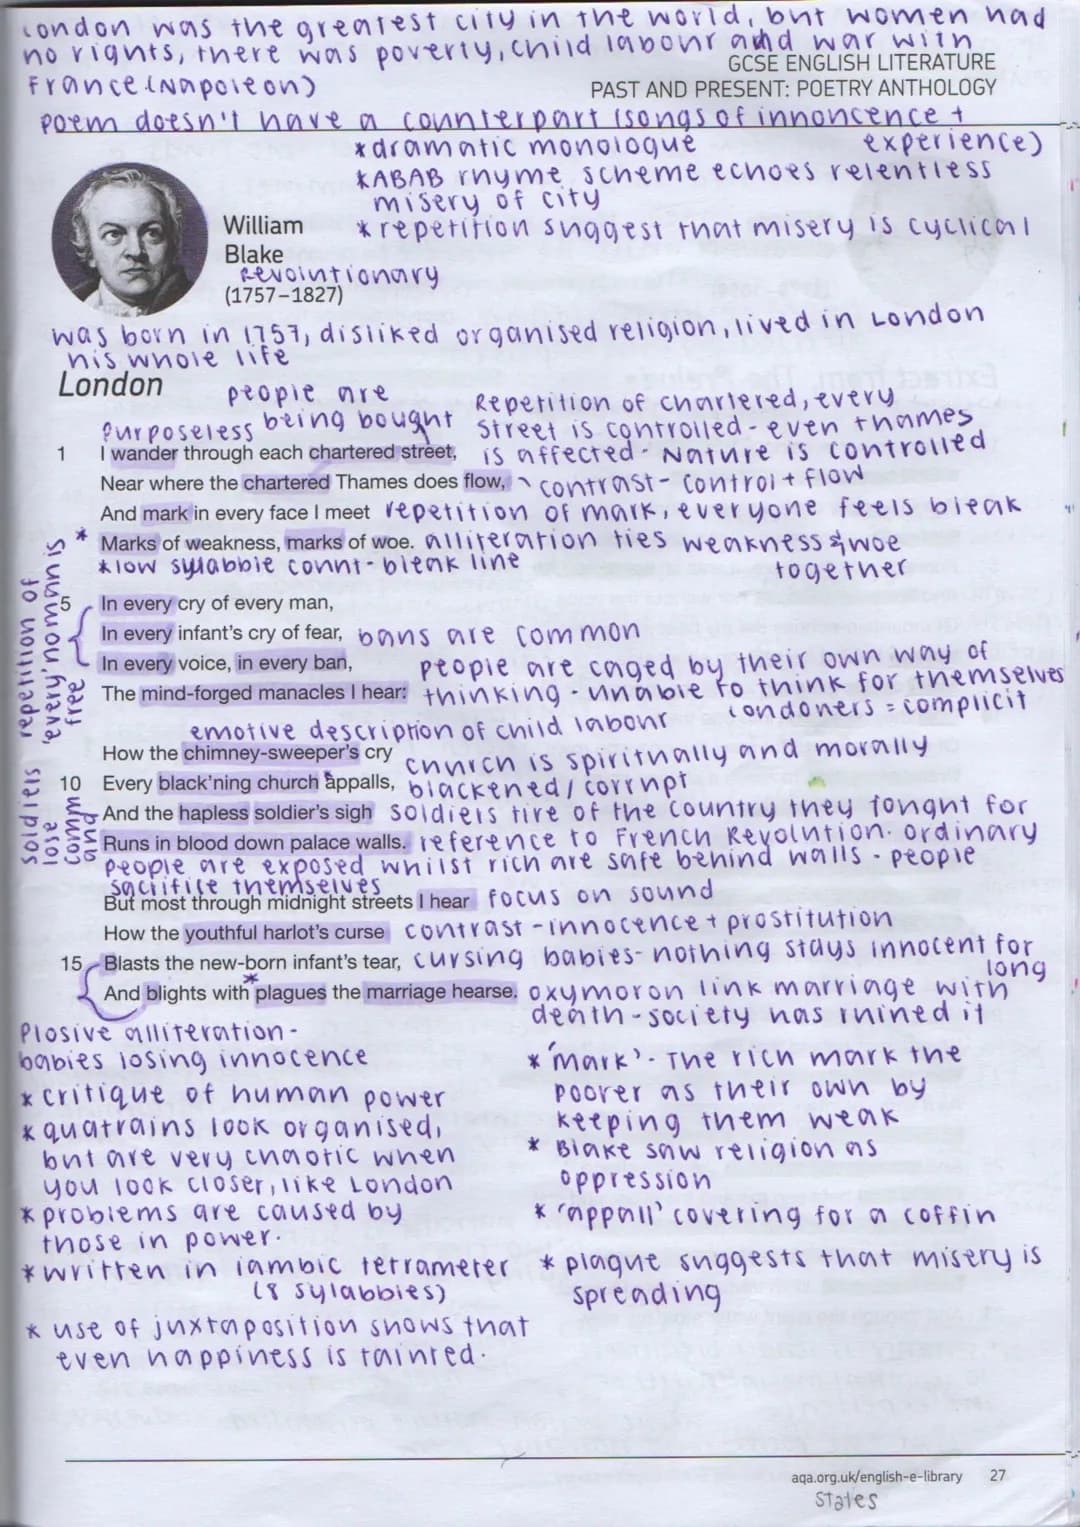 London was the greatest city in the world, but women had
no rights, there was poverty, child labour and war with
France (Napoleon)
GCSE ENGLISH LITERATURE
PAST AND PRESENT: POETRY ANTHOLOGY
poem doesn't have a counterpart (songs of innoncence +
experience)
*dramatic monologue
*ABAB rhyme scheme echoes relentless
misery of city
*repetition suggest that misery is cyclical
William
Blake
Revolutionary
(1757–1827)
was born in 1757, disliked organised religion, lived in London
his whole life
London
people are
being bought
Purposeless
Repetition of chartered, every
street is controlled - even thames
is affected - Nature is controlled
1 I wander through each chartered street,
Near where the chartered Thames does flow,
contrast - control + flow
And mark in every face I meet
repetition of mark, everyone feels bleak
* Marks of weakness, marks of woe.
alliteration ties weakness & woe
together
*low sylabble count - bleak line
repetition of
'every' no man is
free
5 In every cry of every man,
In every infant's cry of fear,
bans are common
In every voice, in every ban,
people are caged by their own way of
The mind-forged manacles I hear:
thinking - unable to think for themselves
Londoners = complicit
emotive description of child labour
How the chimney-sweeper's cry
church is spiritually and morally
10 Every black'ning church appalls,
blackened / corrupt
soldiers
lose
comm
and
And the hapless soldier's sigh
soldiers tire of the country they fought for
Runs in blood down palace walls.
reference to French Revolution. ordinary
people are exposed whilst rich are safe behind walls - people
sacrifise themselves
But most through midnight streets I hear
focus on sound
How the youthful harlot's curse
contrast - innocence + prostitution
15 Blasts the new-born infant's tear,
cursing babies - nothing stays innocent for
long
And blights with *plagues the marriage hearse.
oxymoron link marriage with
death - society has ruined it
Plosive alliteration -
babies losing innocence
* critique of human power
* quatrains look organised,
but are very chaotic when
you look closer, like London
* problems are caused by
those in power.
* written in iambic tetrameter
(8 sylabbles)
* use of juxtaposition shows that
even happiness is tainted.
* 'mark' - The rich mark the
poorer as their own by
keeping them weak
* Blake saw religion as
oppression
* 'appall' covering for a coffin
* plague suggests that misery is
spreading
aqa.org.uk/english-e-library 27
states